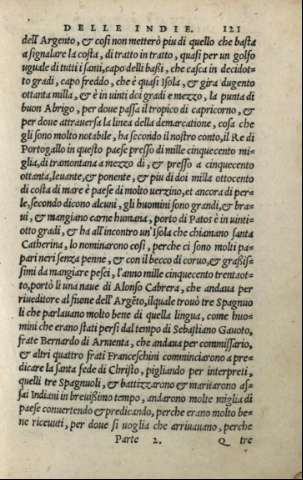 DELLE INDIE. 121
dell'Argento, & così non metterò piu di quello che basta
a signalare la costa, di tratto in tratto, quasi per un golfo
uguale di tutti i sani, capo delli bassi, che casca in decidot-
to gradi, capo freddo, che è quasi Isola, & gira dugento
ottanta milla, & è in uinti dei gradi e mezzo, la punta di
buon Abrigo, per doue passa il tropico di capricorno, &
per doue attrauersa la linea della demarcatione, cosa che
gli sono molto notabile, ha secondo il nostro conto, il Re di
Portogallo in questo paese presso di mille cinquecento mi-
glia, di tramontana a mezzo di, & presso a cinquecento
ottanta, leuante, & ponente, & piu di doi milla ottocento
di costa di mare è paese di molto uerzino, et ancora di per-
le, secondo dicono alcuni, gli huomini sono grandi, & bra-
ui, & mangiano carne humana, porto di Patos è in uinti-
otto gradi, & ha all'incontro un'Isola che chiamano santa
Catherina, lo nominarono così, perche ci sono molti pa-
pari neri senza penne, & con il becco di coruo, & grassis-
simi da mangiare pesci, l'anno mille cinquecento trentaot-
to, portò lì una naue di Alonso Cabrera, che andaua per
riueditore al fiume dell'Argẽto, ilquale trouò tre Spagnuo
li che parlauano molto bene di quella lingua, come huo-
mini che erano stati persi dal tempo di Sebastiano Gauoto,
frate Bernardo di Armenta, che andaua per commissario,
& altri quattro frati Franceschini comminciarono a pre-
dicare la santa fede di Christo, pigliando per interpreti,
quelli tre Spagnuoli, & battizzarono & maritarono as-
sai Indiani in breuissimo tempo, andarono molte miglia di
paese conuertendo & predicando, perche erano molto be-
ne riceuuti, per doue si uoglia che arriuauano, perche
Parte 2. Q tre